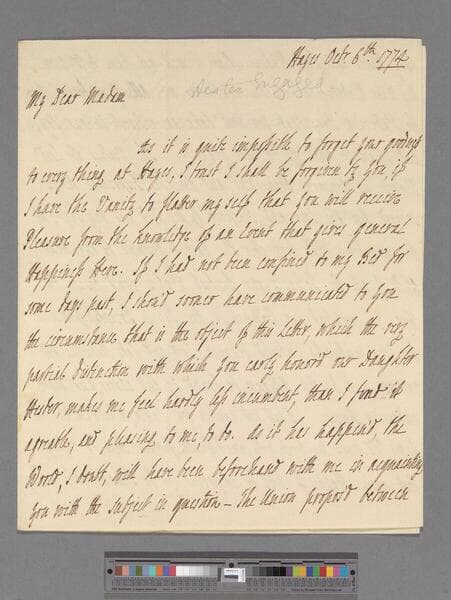 Hayes Octr. 6th. 1774
Hester Engaged
My Dear Madam
As it is quite impossible to forget your goodness
to every thing at Hayes, I trust I shall be forgiven by you, if
I have the Vanity to flatter my self that you will receive
Pleasure from the Knowledge of an Event that gives general
Happiness Here. If I had not been confined to my Bed for
some days past, I shou'd sooner have communicated to you
the circumstance that is the object of this Letter, which the very
partial distinction with which you early honor'd our Daughter
Hester, makes me feel hardly less incumbent, than I find it
agreable, and pleasing to me, to do. As it has happen'd, the
World, I doubt, will have been beforehand with me in acquainting
you with the subject in question – The Union propos'd between